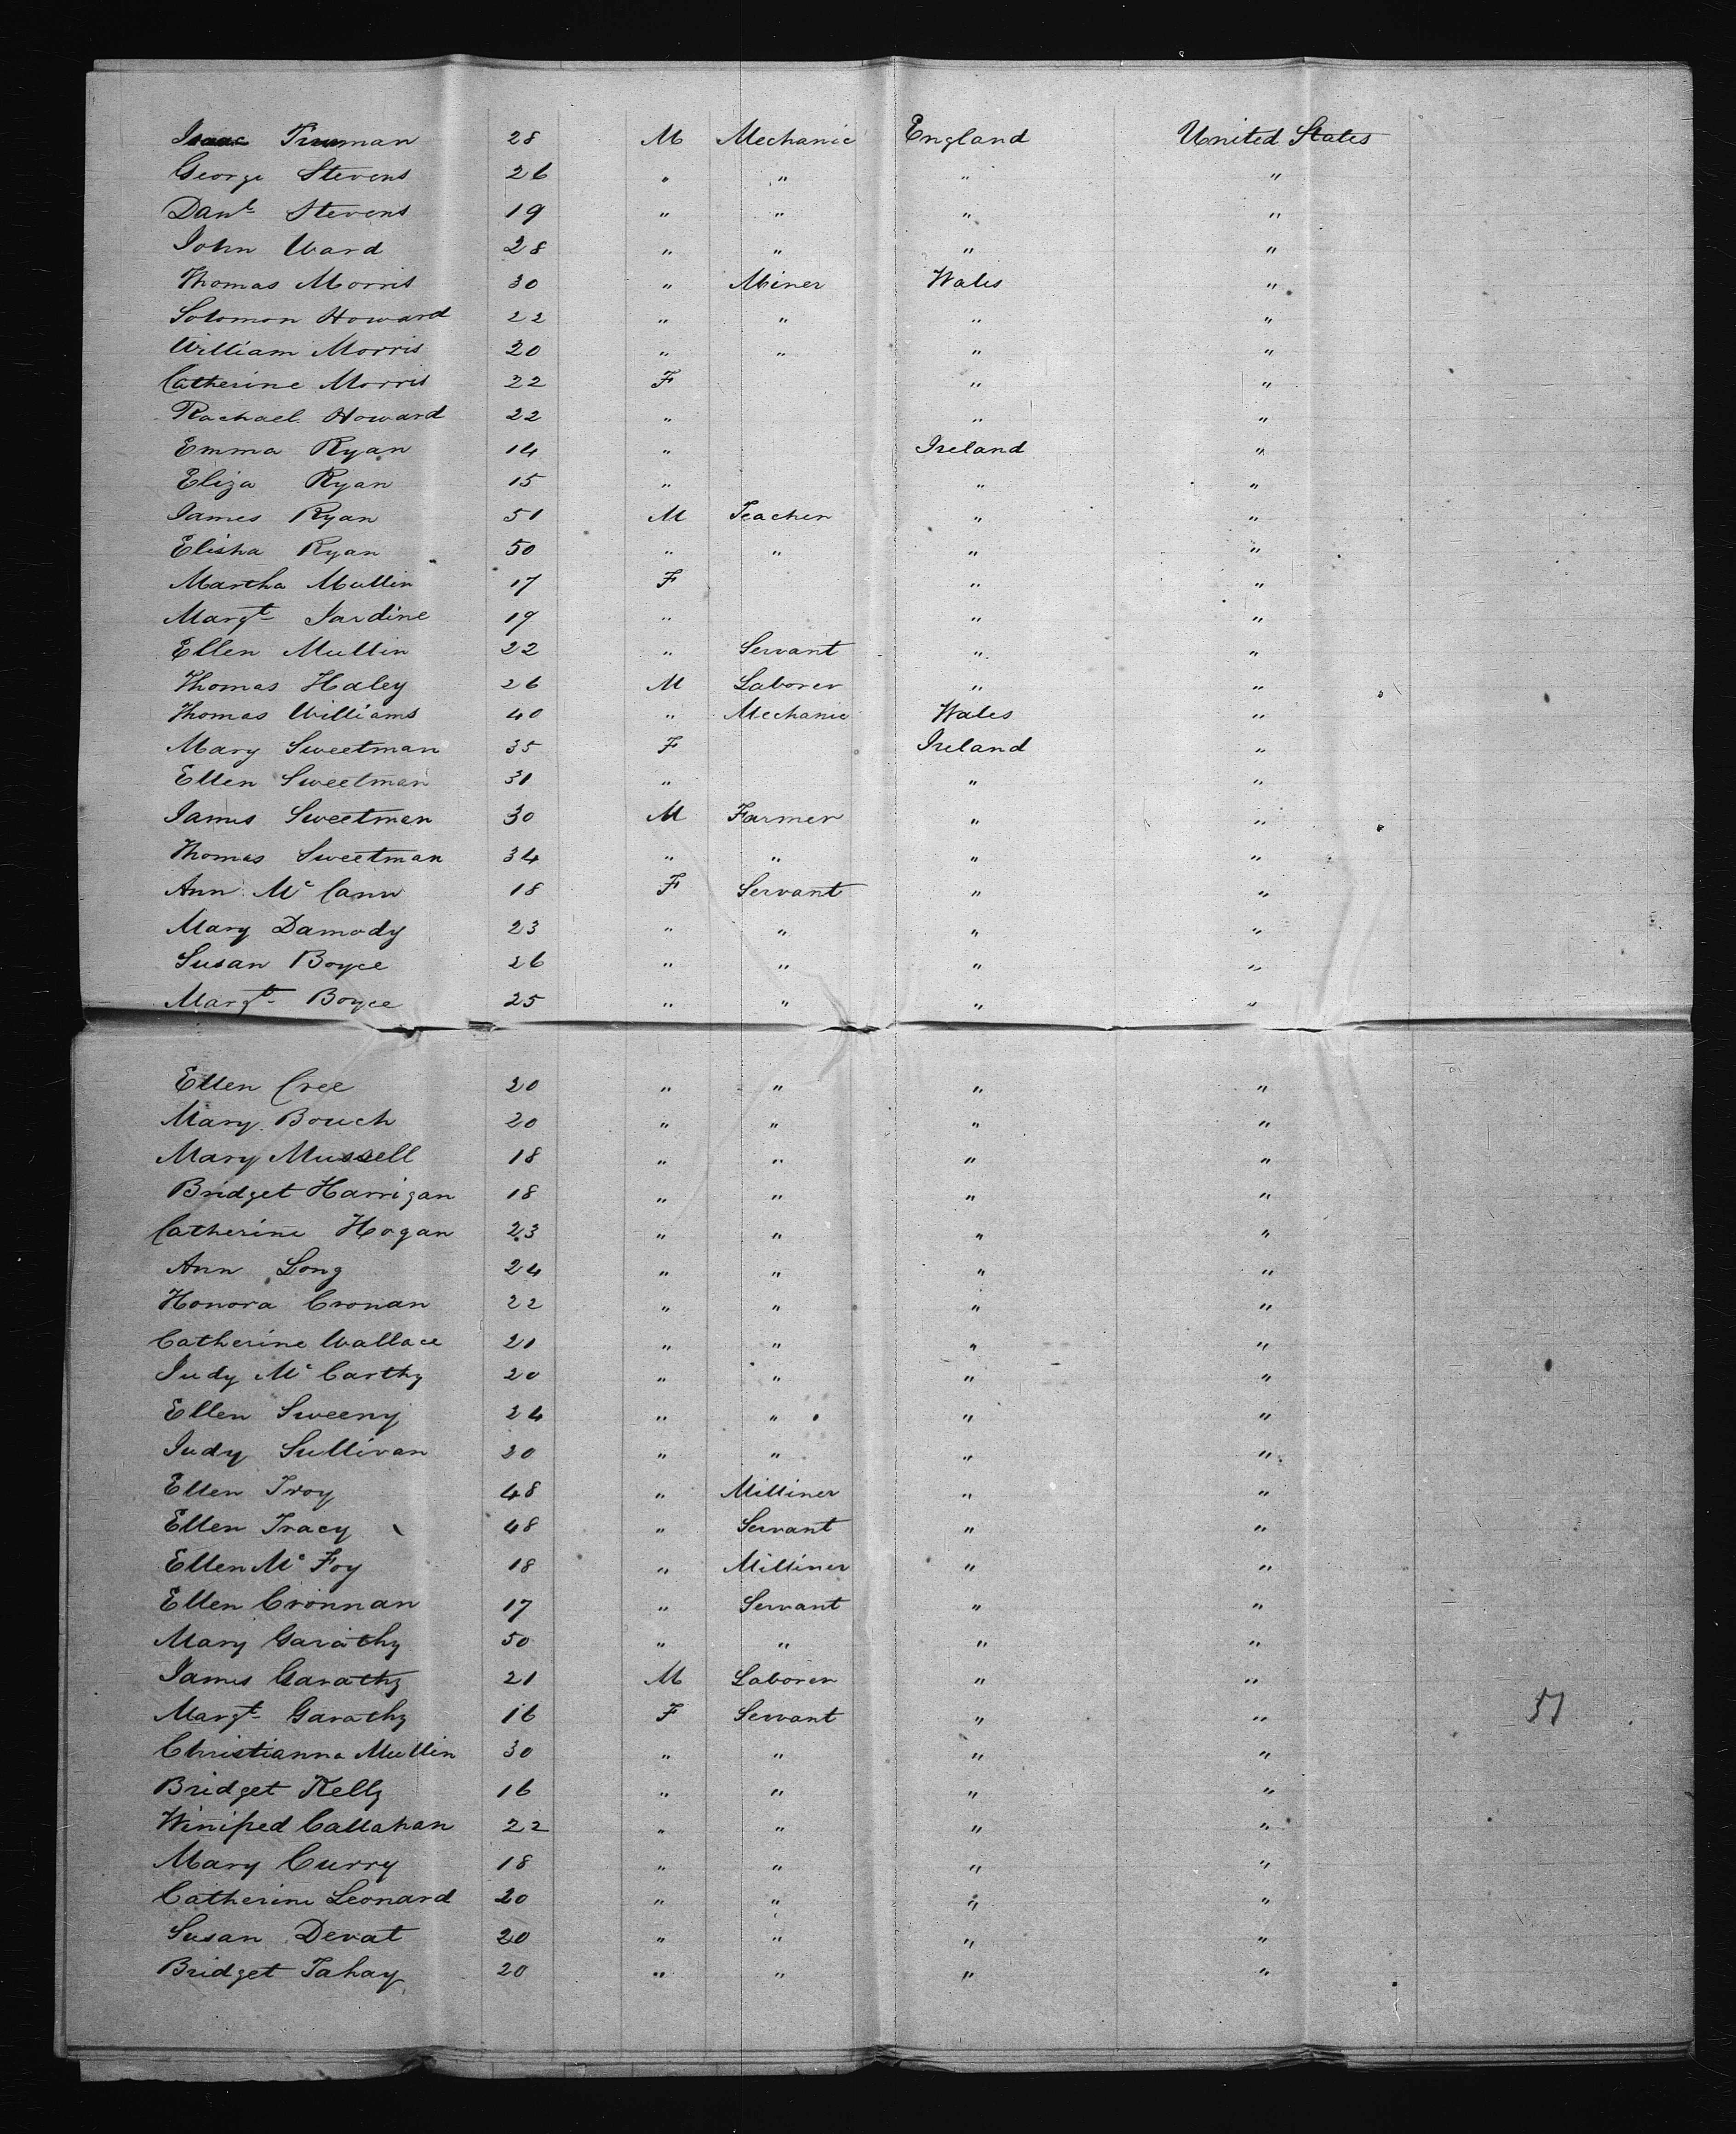 Isaac Truman 28 M Mechanic England United States
George Stevens 26 " " " "
Danl Stevens 19 " " " "
John Ward 28 " " " "
Thomas Morris 30 " Miner Wales "
Solomon Howard 22 " " " "
William Morris 20 " " " "
Catherine Morris 22 F " "
Rachael Howard 22 " " "
Emma Ryan 14 " Ireland "
Eliza Ryan 15 " " "
James Ryan 51 M Teacher " "
Elisha Ryan 50 " " " "
Martha Mullin 17 F " "
Margt Jardine 19 " " "
Ellen Mullin 22 " Servant " "
Thomas Haley 26 M Laborer " "
Thomas Williams 40 " Mechanic Wales "
Mary Sweetman 35 F Ireland "
Ellen Sweetman 31 " " "
James Sweetman 30 M Farmer " "
Thomas Sweetman 34 " " " "
Ann McCann 18 F Servant " "
Mary Damody 23 " " " "
Susan Boyce 26 " " " "
Margt Boyce 25 " " " "
Ellen Cree 20 " " " "
Mary Bouch 20 " " " "
Mary Mussell 18 " " " "
Bridget Harrigan 18 " " " "
Catherine Hogan 23 " " " "
Ann Long 24 " " " "
Honora Cronan 22 " " " "
Catherine Wallace 21 " " " "
Judy McCarthy 20 " " " "
Ellen Sweeny 24 " " " "
Judy Sullivan 20 " " " "
Ellen Troy 48 " Milliner " "
Ellen Tracy 48 " Servant " "
Ellen McFoy 18 " Milliner " "
Ellen Cronnan 17 " Servant " "
Mary Garathy 50 " " " "
James Garathy 21 M Laborer " "
Margt Garathy 16 F Servant " " 51
Christianna Mullin 30 " " " "
Bridget Kelly 16 " " " "
Winifred Callahan 22 " " " "
Mary Curry 18 " " " "
Catherine Leonard 20 " " " "
Susan Devat 20 " " " "
Bridget Tahay 20 " " " "